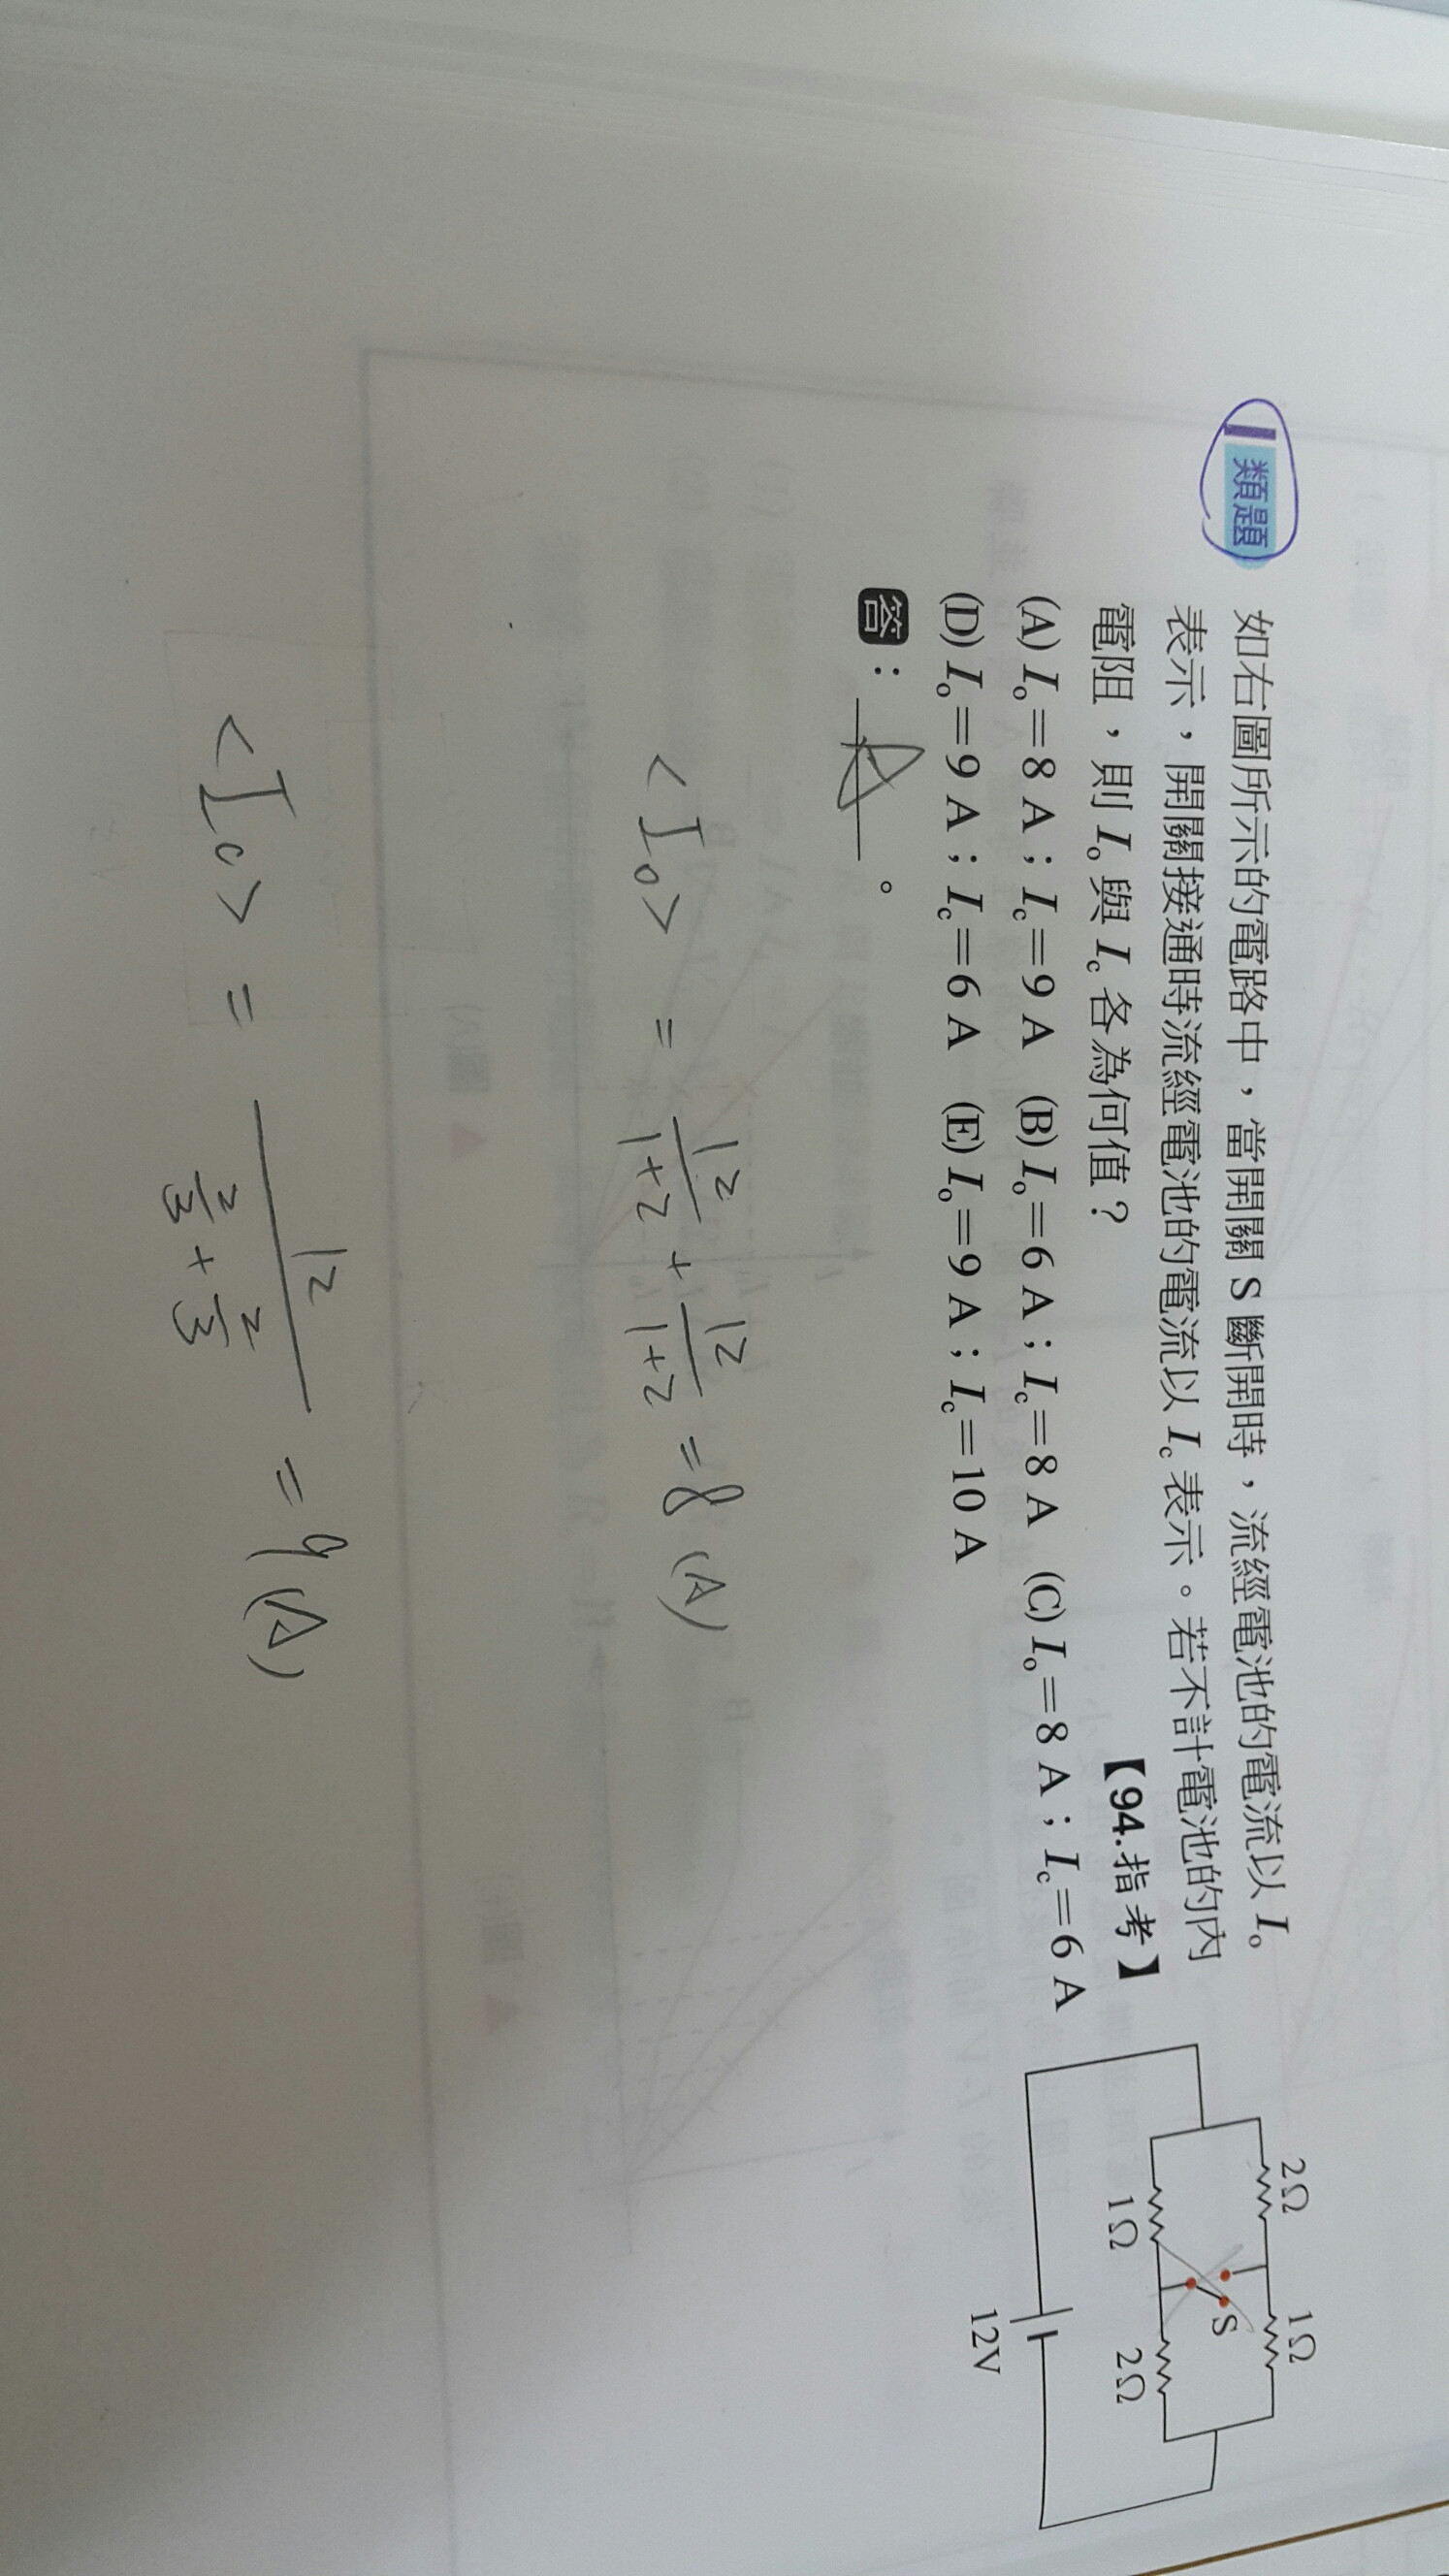 類題
如右圖所示的電路中，當開關 S 斷開時，流經電池的電流以 Iₒ
表示，開關接通時流經電池的電流以 I꜀ 表示。若不計電池的內
電阻，則 Iₒ 與 I꜀ 各為何值？
【94.指考】
(A) Iₒ＝8 A；I꜀＝9 A (B) Iₒ＝6 A；I꜀＝8 A (C) Iₒ＝8 A；I꜀＝6 A
(D) Iₒ＝9 A；I꜀＝6 A (E) Iₒ＝9 A；I꜀＝10 A
答：A。
2Ω 1Ω
S
1Ω 2Ω
12V
<I₀> = 12/(1+2) + 12/(1+2) = 8 (A)
<I꜀> = 12/(2/3 + 2/3) = 9 (A)